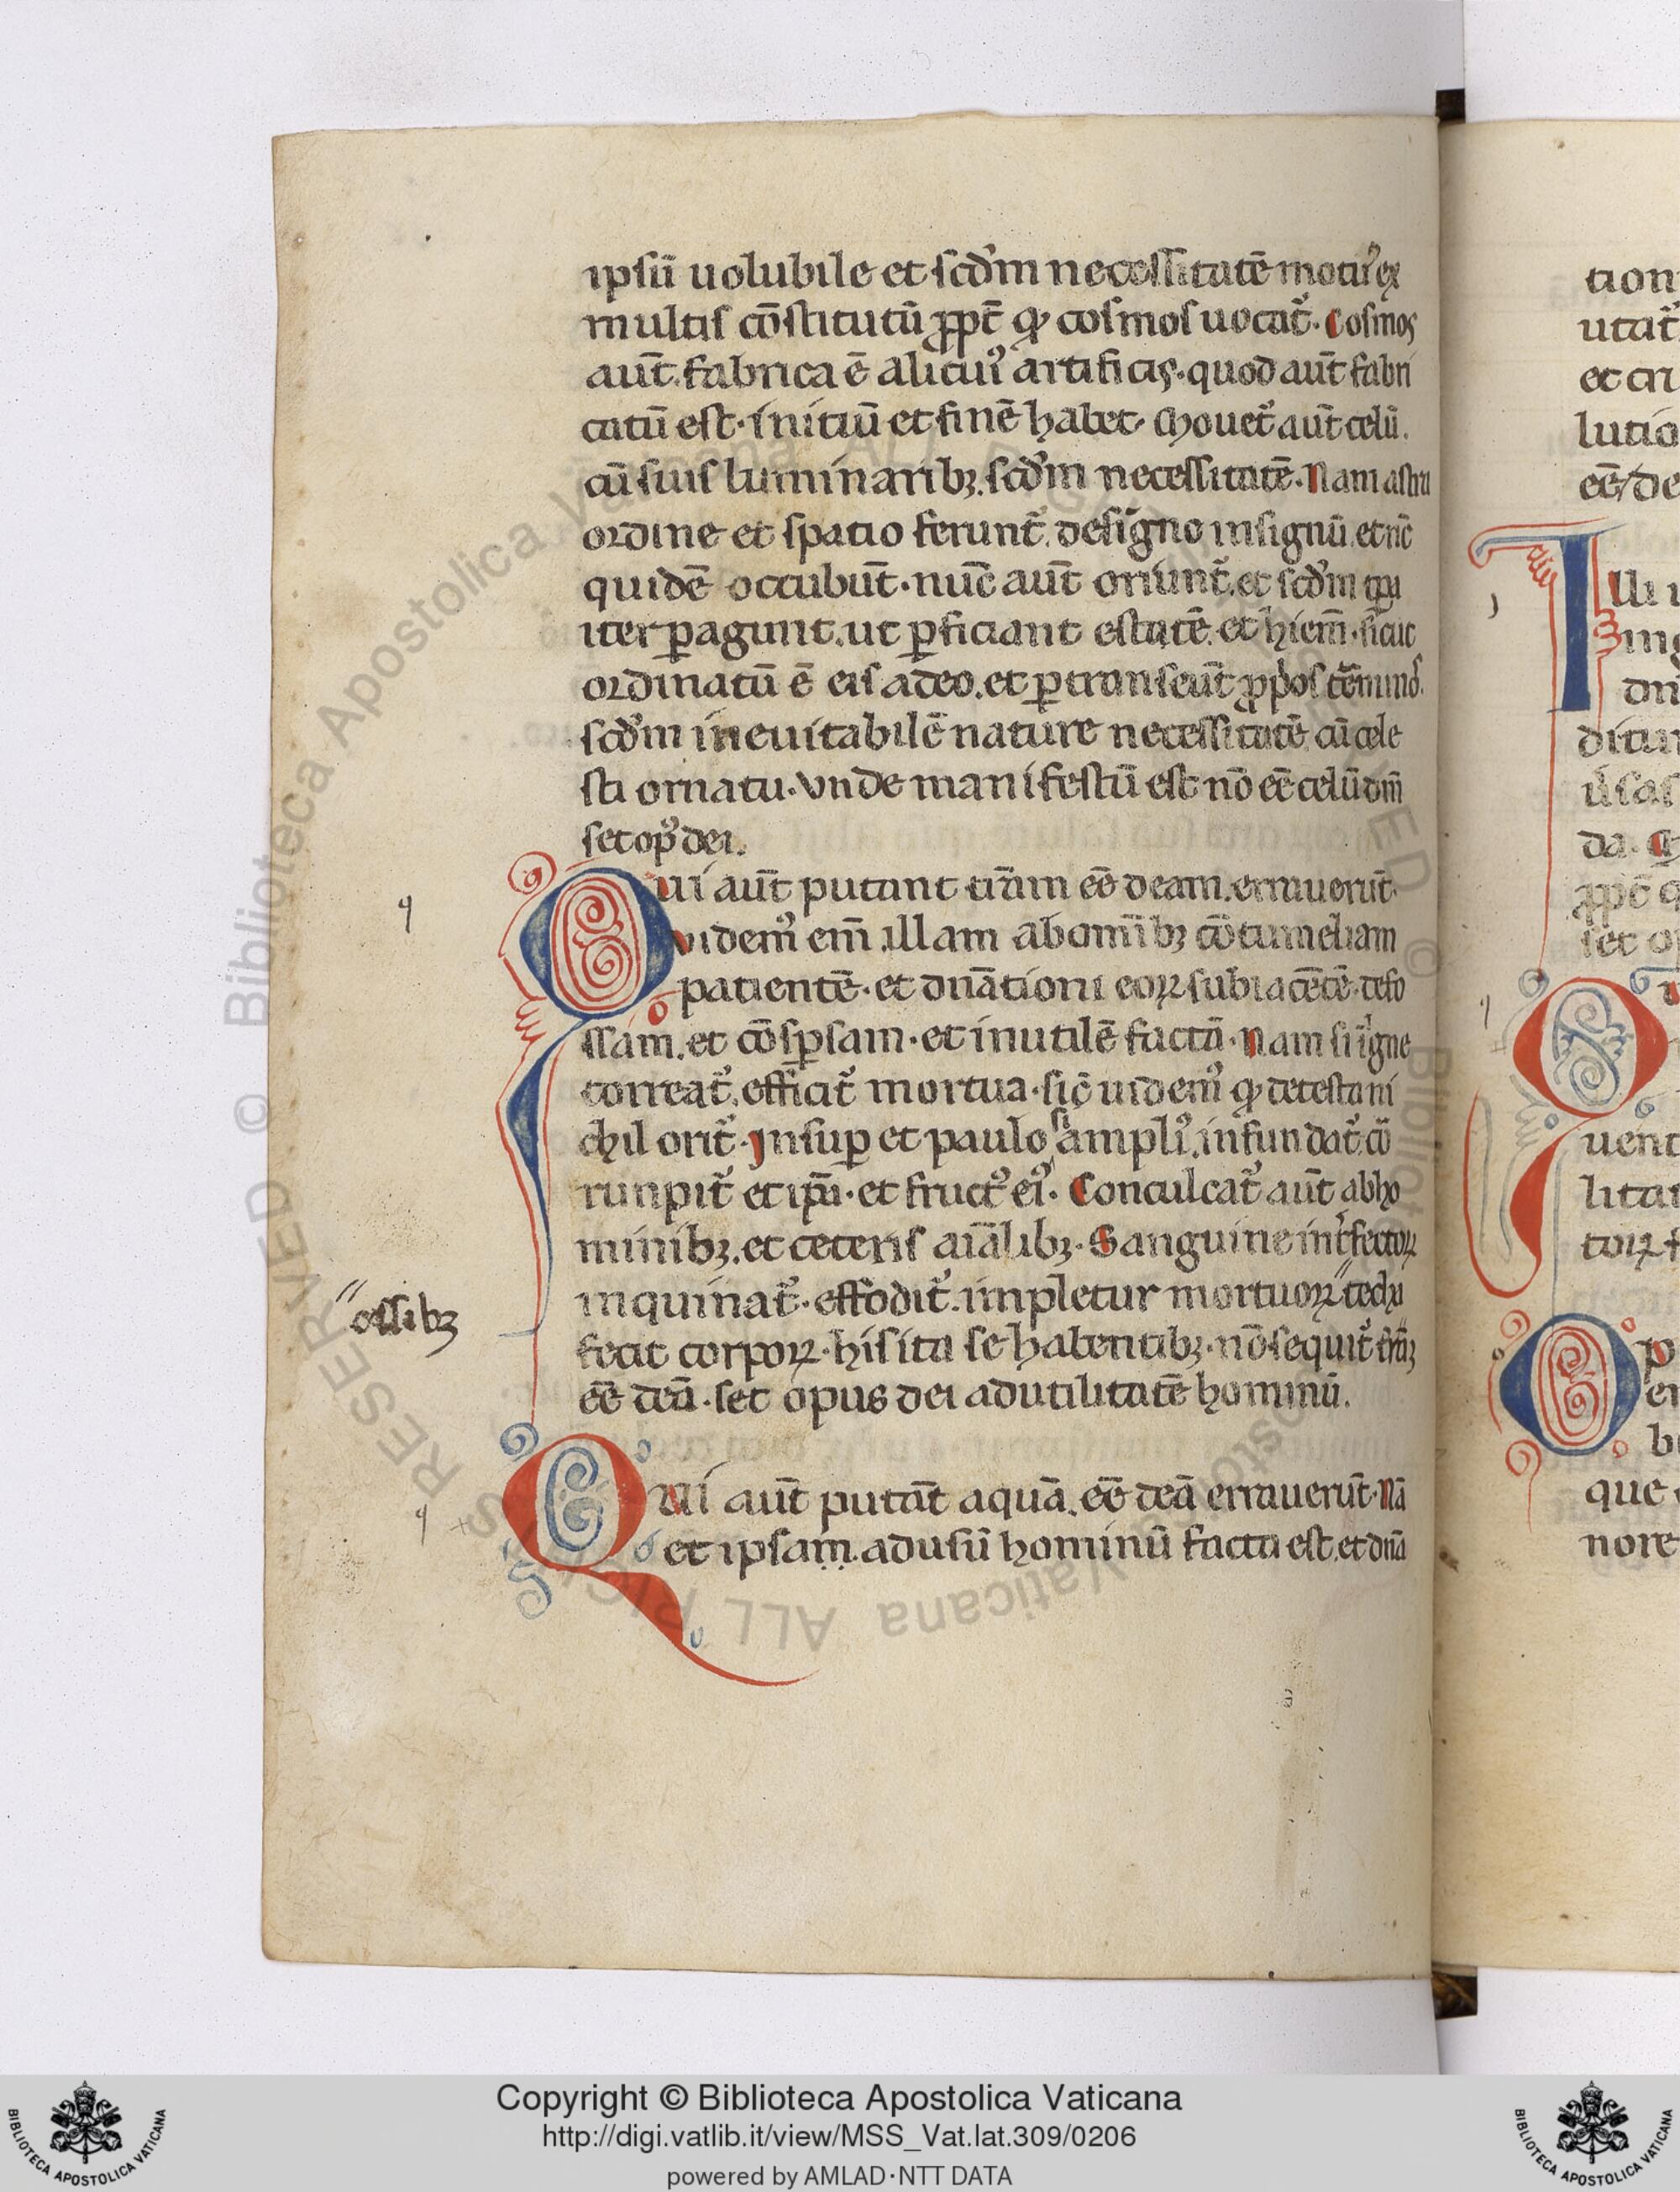 ipsū uolubile et scd'm necessitatē motus ex
multis cōstitutū ꝓpt̄ qd cosmos uocat᷑. Cosmos
aut̄. fabrica ē alicuiꝰ artificis. quod aut̄ fabri
catū est. initiū et finē habet. Mouet᷑ aut̄ celū.
cū suis luminarib;. scd'm necessitatē. Nam astra
ordine et spatio ferunt᷑. de signo in signū. et nc̄
quidē occubūt. nūc aūt oriunt᷑. et scd'm tp̄a
iter ꝑagunt. ut ꝑficiant estatē. et hiem̄. sicut
ordinatū ē eis a deo. et ꝑtranseūt ꝓp'os t'minos.
scd'm ineuitabilē nature necessitatē cū cele
sti ornatu. Vnde manifestū est nō eē celū dm̄
set opꝰ dei.
Qui aūt putant tr̄am eē deam. errauerūt.
Videmꝰ em̄ illam ab omīb; cōtumeliam
patientē. et dn̄ationi eoꝝ subiacētē. defo
ssam. et cōsꝑsam. et inutilē factā. Nam si igne
torreat᷑. efficit᷑ mortua. sic̄ uidemꝰ qd de testa ni
chil orit᷑. Insuꝑ et paulo si ampliꝰ. infundat᷑. cō
runpit᷑ et ip̄a. et fructꝰ eiꝰ. Conculcat᷑ aūt ab ho
minib;. et ceteris aīalib;. Sanguine int'fectoꝝ
inquinat᷑. effodit᷑. impletur mortuoꝝ" techa
fecit corpoꝝ. his ita se habentib;. nō sequit᷑ tr̄ā
eē deā. set opus dei ad utilitatē hominū.
"ossib;
Qui aūt putāt aquā. eē deā errauerūt. Nā
et ipsam. ad usū hominū facta est. et dn̄a
Copyright © Biblioteca Apostolica Vaticana
http://digi.vatlib.it/view/MSS_Vat.lat.309/0206
powered by AMLAD·NTT DATA
BIBLIOTECA APOSTOLICA VATICANA
BIBLIOTECA APOSTOLICA VATICANA